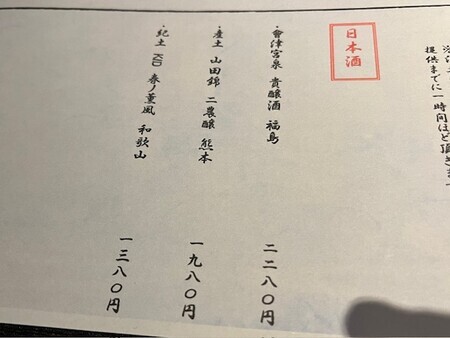 提供までに一時間ほど頂きます
日本酒
・會津宮泉 貴醸酒 福島 二二八〇円
・産土 山田錦 二農醸 熊本 一九八〇円
・紀土 KID 春ノ薫風 和歌山 一三八〇円